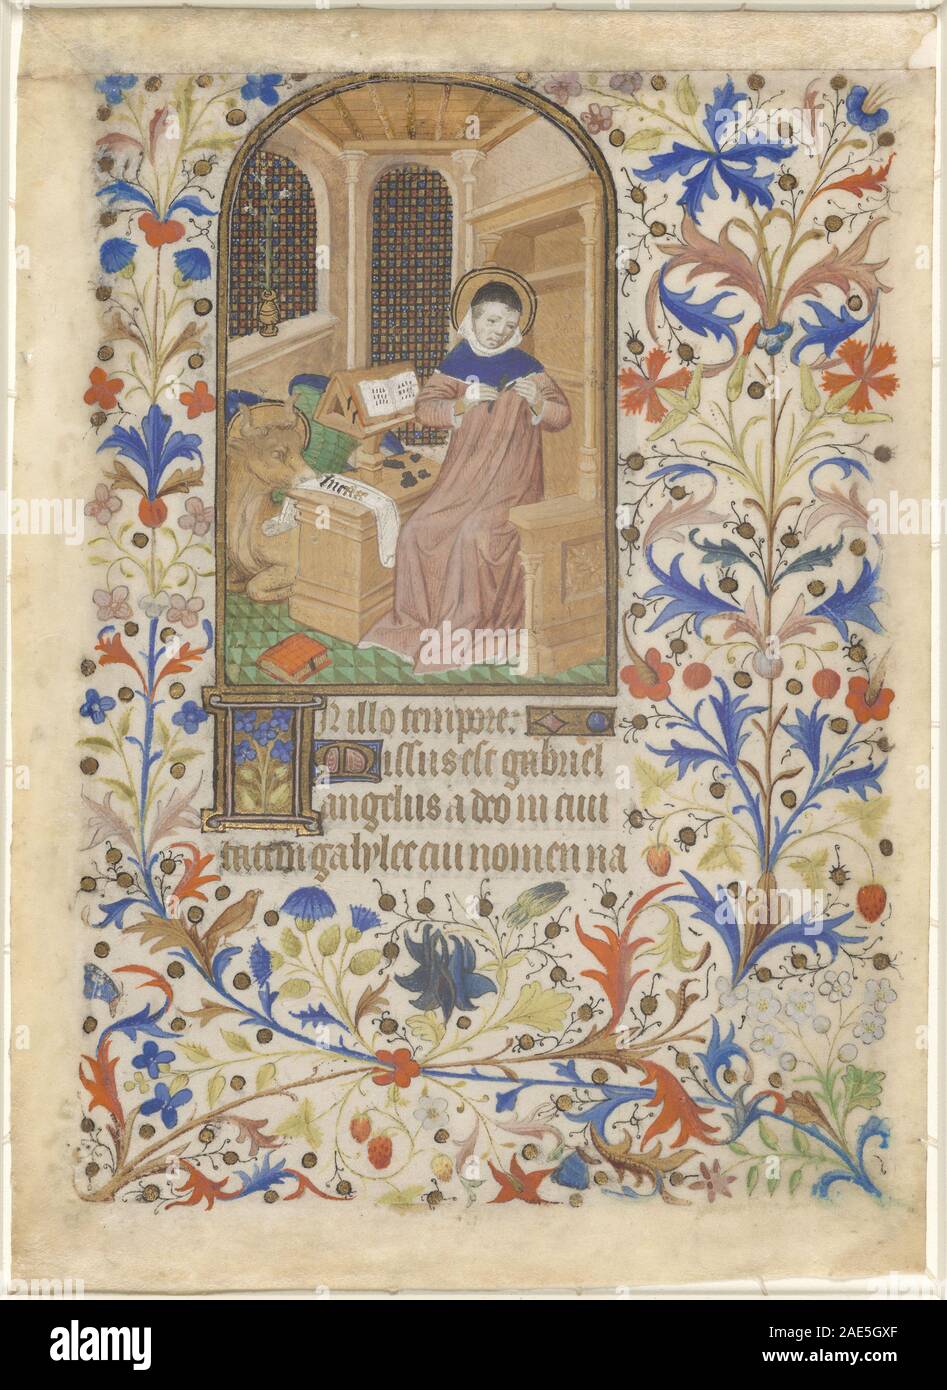 lucas
In illo tempore:
Missus est gabriel
angelus a deo in ciui
tatem galylee cui nomen na
alamy
Image ID: 2AE5GXF
www.alamy.com